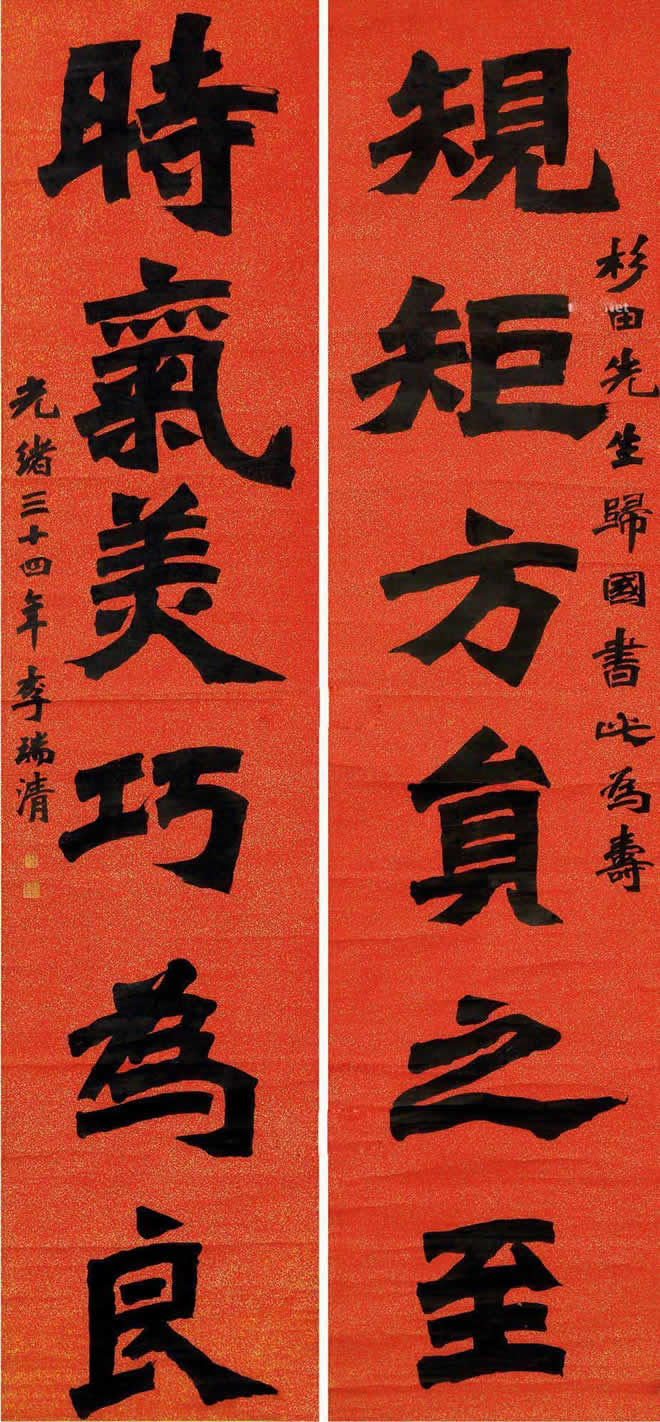 規矩方員之至
杉田先生歸國書此為壽
時氣美巧為良
光緒三十四年李瑞清
Net